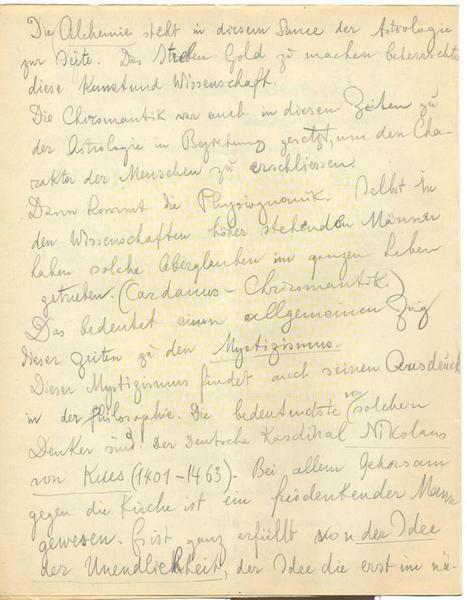 Die Alchemie steht in diesem Sinne der Astrologie
zur Seite. Das Streben Gold zu machen beherrschte
diese Kunst und Wissenschaft.
Die Chiromantik war auch in diesen Zeiten zu
der Astrologie in Beziehung gesetzt, um den Cha-
rakter der Menschen zu erschliessen.
Dann kommt die Physiognomik. Selbst in
den Wissenschaften höher stehenden Männer
haben solche Aberglauben im ganzen Leben
getrieben. (Cardanus – Chiromantik.)
Das bedeutet einen allgemeinen Zug
dieser Zeiten zu den Mystizismus.
Dieser Mystizismus findet auch seinen Ausdruck
in der Philosophie. Die bedeutendste von solchen
Denker sind: Der Deutsche Kardinal Nikolaus
von Kues (1401–1463). Bei allem Gehorsam
gegen die Kirche ist ein freidenkender Mann
gewesen. Er ist ganz erfüllt von der Idee
der Unendlichkeit, der Idee die erst im nä-